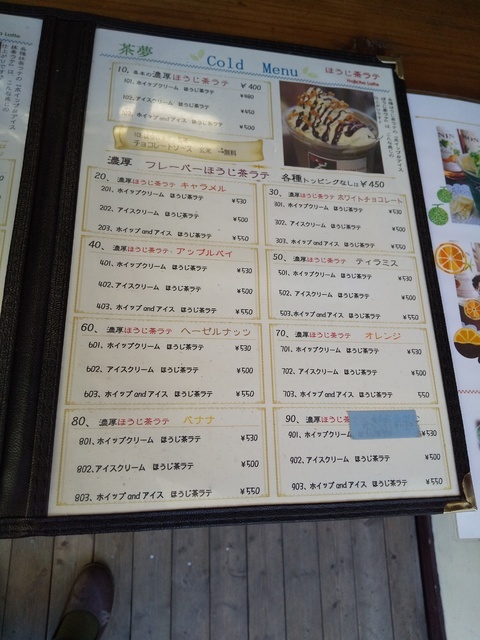 茶夢
Cold Menu
ほうじ茶ラテ
Hojicha Latte
10、基本の濃厚ほうじ茶ラテ ¥400
101、ホイップクリーム ほうじ茶ラテ ¥480
102、アイスクリーム ほうじ茶ラテ ¥450
ホイップ and アイス ほうじ茶ラテ ¥500
チョコレートソース 無料
濃厚 フレーバーほうじ茶ラテ 各種トッピングなしは¥450
20、濃厚ほうじ茶ラテ キャラメル
201、ホイップクリーム ほうじ茶ラテ ¥530
202、アイスクリーム ほうじ茶ラテ ¥500
203、ホイップ and アイス ほうじ茶ラテ ¥550
30、濃厚ほうじ茶ラテ ホワイトチョコレート
301、ホイップクリーム ほうじ茶ラテ ¥530
302、アイスクリーム ほうじ茶ラテ ¥500
303、ホイップ and アイス ほうじ茶ラテ ¥550
40、濃厚ほうじ茶ラテ アップルパイ
401、ホイップクリーム ほうじ茶ラテ ¥530
402、アイスクリーム ほうじ茶ラテ ¥500
403、ホイップ and アイス ほうじ茶ラテ ¥550
50、濃厚ほうじ茶ラテ ティラミス
501、ホイップクリーム ほうじ茶ラテ ¥530
502、アイスクリーム ほうじ茶ラテ ¥500
503、ホイップ and アイス ほうじ茶ラテ ¥550
60、濃厚ほうじ茶ラテ ヘーゼルナッツ
601、ホイップクリーム ほうじ茶ラテ ¥530
602、アイスクリーム ほうじ茶ラテ ¥500
603、ホイップ and アイス ほうじ茶ラテ ¥550
70、濃厚ほうじ茶ラテ オレンジ
701、ホイップクリーム ほうじ茶ラテ ¥530
702、アイスクリーム ほうじ茶ラテ ¥500
703、ホイップ and アイス ほうじ茶ラテ 550
80、濃厚ほうじ茶ラテ バナナ
801、ホイップクリーム ほうじ茶ラテ ¥530
802、アイスクリーム ほうじ茶ラテ ¥500
803、ホイップ and アイス ほうじ茶ラテ ¥550
90、濃厚ほうじ茶
901、ホイップクリーム ほうじ ¥530
902、アイスクリーム ほうじ茶ラテ ¥500
903、ホイップ and アイス ほうじ茶ラテ ¥550